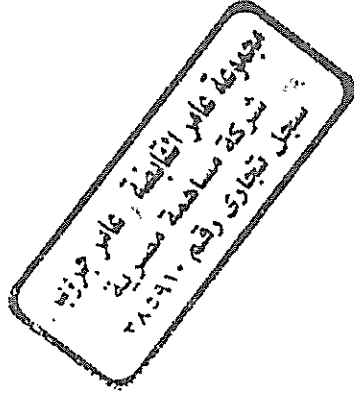 مجموعة عامر القابضة "عامر جروب"
شركة مساهمة مصرية
سجل تجارى رقم